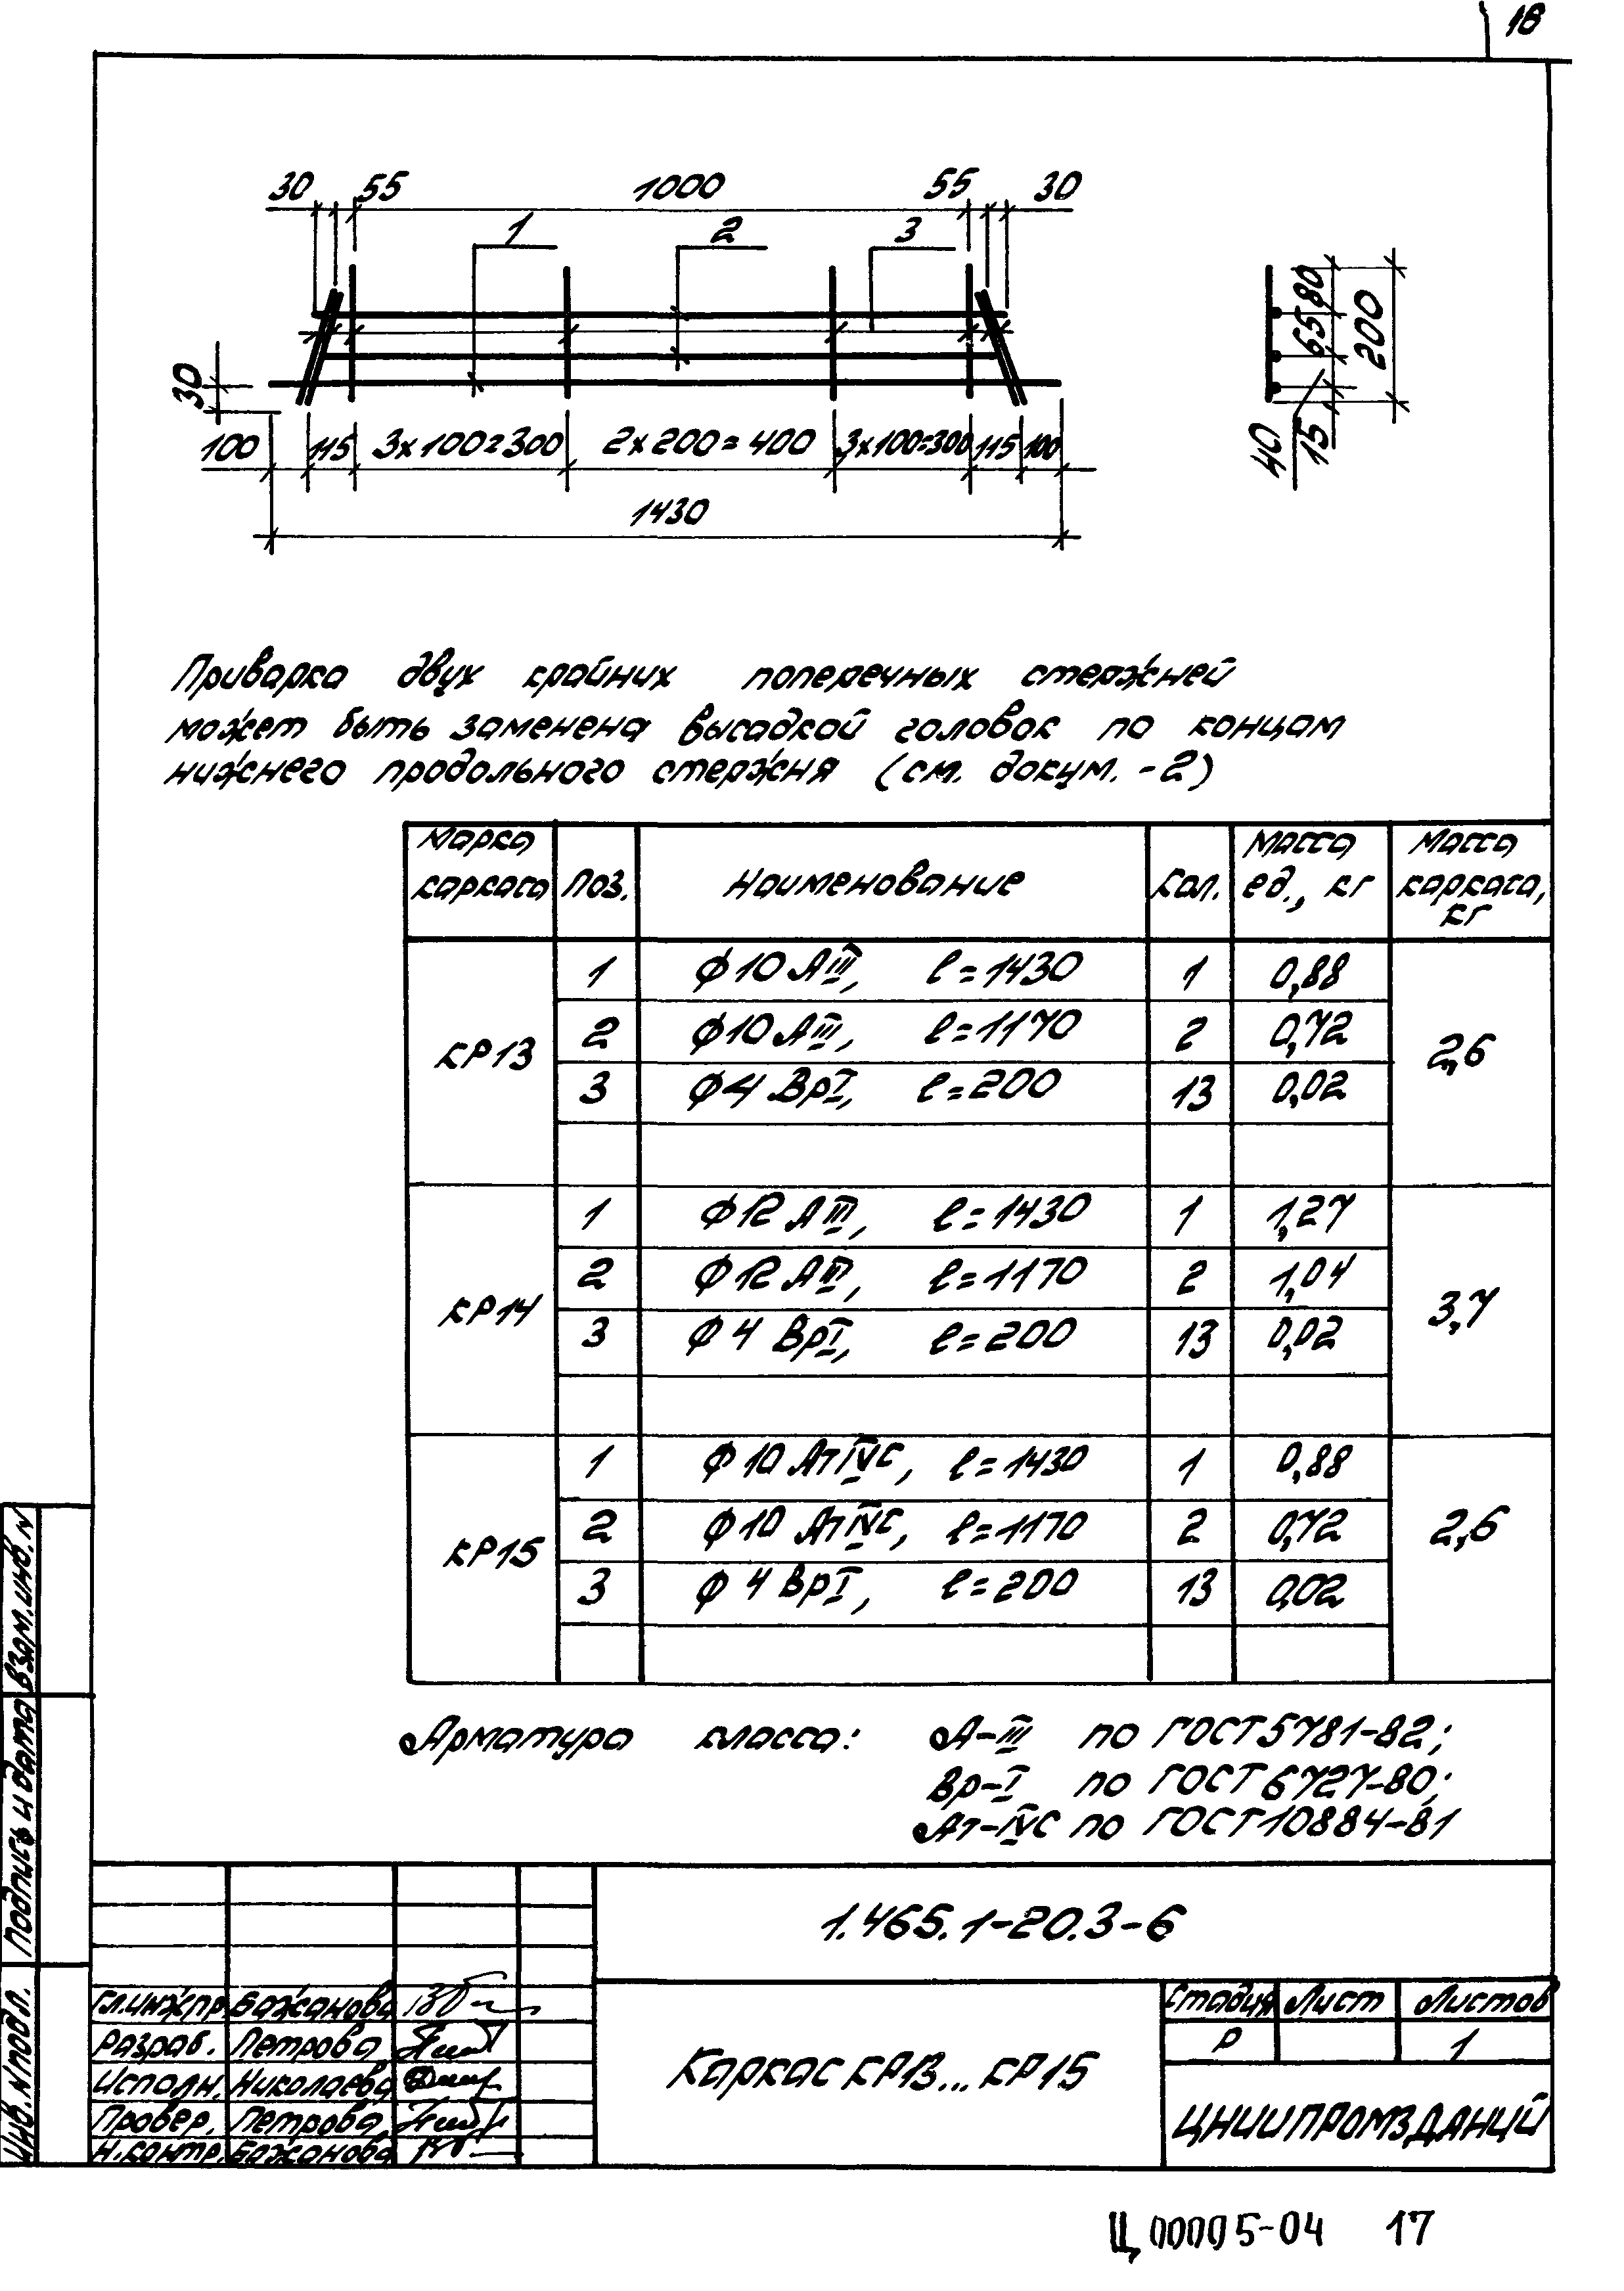 18
30 55 1000 55 30
1 2 3
30
100 115 3х100=300 2х200=400 3х100=300 115 100
1430
80
65
200
40
15
Приварка двух крайних поперечных стержней
может быть заменена высадкой головок по концам
нижнего продольного стержня (см. докум. -2)
Марка каркаса Поз. Наименование Кол. Масса ед., кг Масса каркаса, кг
КР13 2,6
1 ф10АIII, ℓ=1430 1 0,88
2 ф10АIII, ℓ=1170 2 0,72
3 ф4 ВрI, ℓ=200 13 0,02
КР14 3,7
1 ф12АIII, ℓ=1430 1 1,27
2 ф12АIII, ℓ=1170 2 1,04
3 ф4 ВрI, ℓ=200 13 0,02
КР15 2,6
1 ф10 АтIVС, ℓ=1430 1 0,88
2 ф10 АтIVС, ℓ=1170 2 0,72
3 ф4 ВрI, ℓ=200 13 0,02
Арматура класса: А-III по ГОСТ 5781-82;
Вр-I по ГОСТ 6727-80;
Ат-IVС по ГОСТ 10884-81
1.465.1-20.3-6
Гл.инж.пр. Бажанова
Разраб. Петрова
Исполн. Николаева
Провер. Петрова
Н.контр. Бажанова
Каркас КР13...КР15
Стадия Лист Листов
Р 1
ЦНИИПРОМЗДАНИЙ
Взам.инв.N
Подпись и дата
Инв.Nподл.
Ц00005-04 17